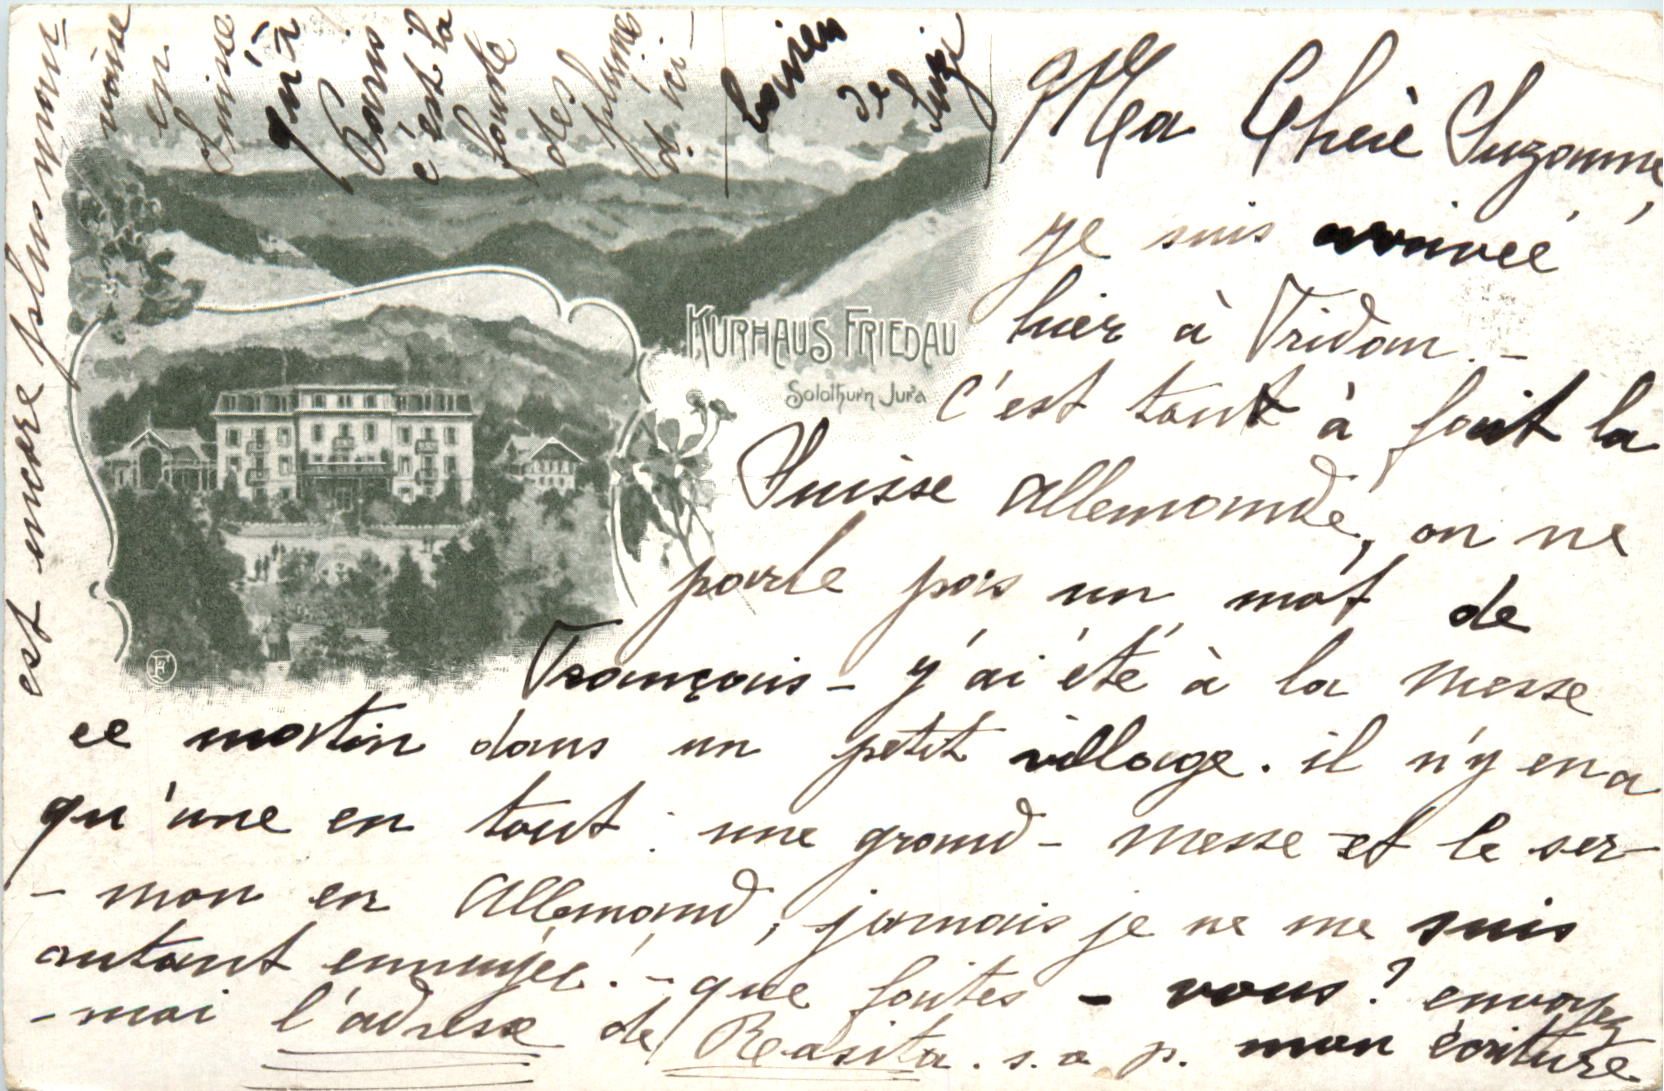 KURHAUS FRIEDAU
Solothurn Jura
Ma Chère Suzanne,
je suis arrivée
hier à Fridau. -
c'est tout à fait la
Suisse allemande, on ne
parle pas un mot de
Français - j'ai été à la messe
ce matin dans un petit village. il n'y en a
qu'une en tout : une grand-messe et le ser-
- mon en Allemand, jamais je ne me suis
autant ennuyée! - que faites-vous? envoyez
-moi l'adresse de Rosita. s. v. p. mon écriture
est encore plus mau-
vaise
en
Suisse
qu'à
Paris
c'est la
faute
des
plumes
d'ici -
de
Suzi